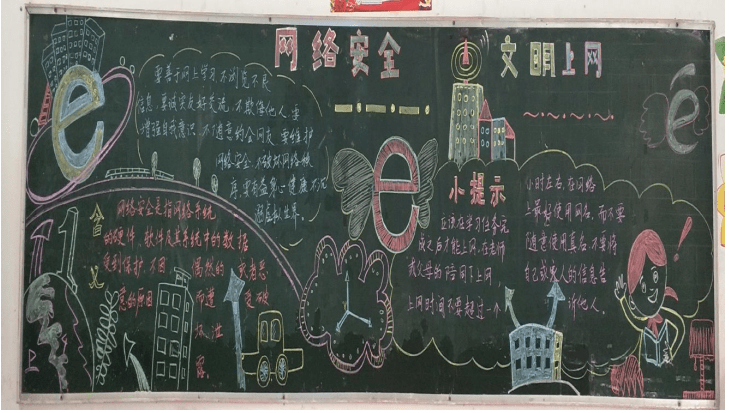 网络安全 文明上网
e
e
e
要善于网上学习 不浏览不良
信息 要诚实友好交流 不欺侮他人 要
增强自我意识 不随意约会网友 要维护
网络安全 不破坏网络秩
序 要有益身心健康 不沉
溺虚拟世界。
含义
网络安全是指网络系统
的硬件、软件及其系统中的数据
受到保护,不因偶然的或者恶
意的原因而遭到破
坏、泄
露。
小提示
应该在学习任务完
成之后才能上网,在老师
或父母的陪同下上网,
上网时间不要超过一个
小时左右,在网络
上最好使用网名,而不要
随意使用真名,不要将
自己或家人的信息告
诉他人。